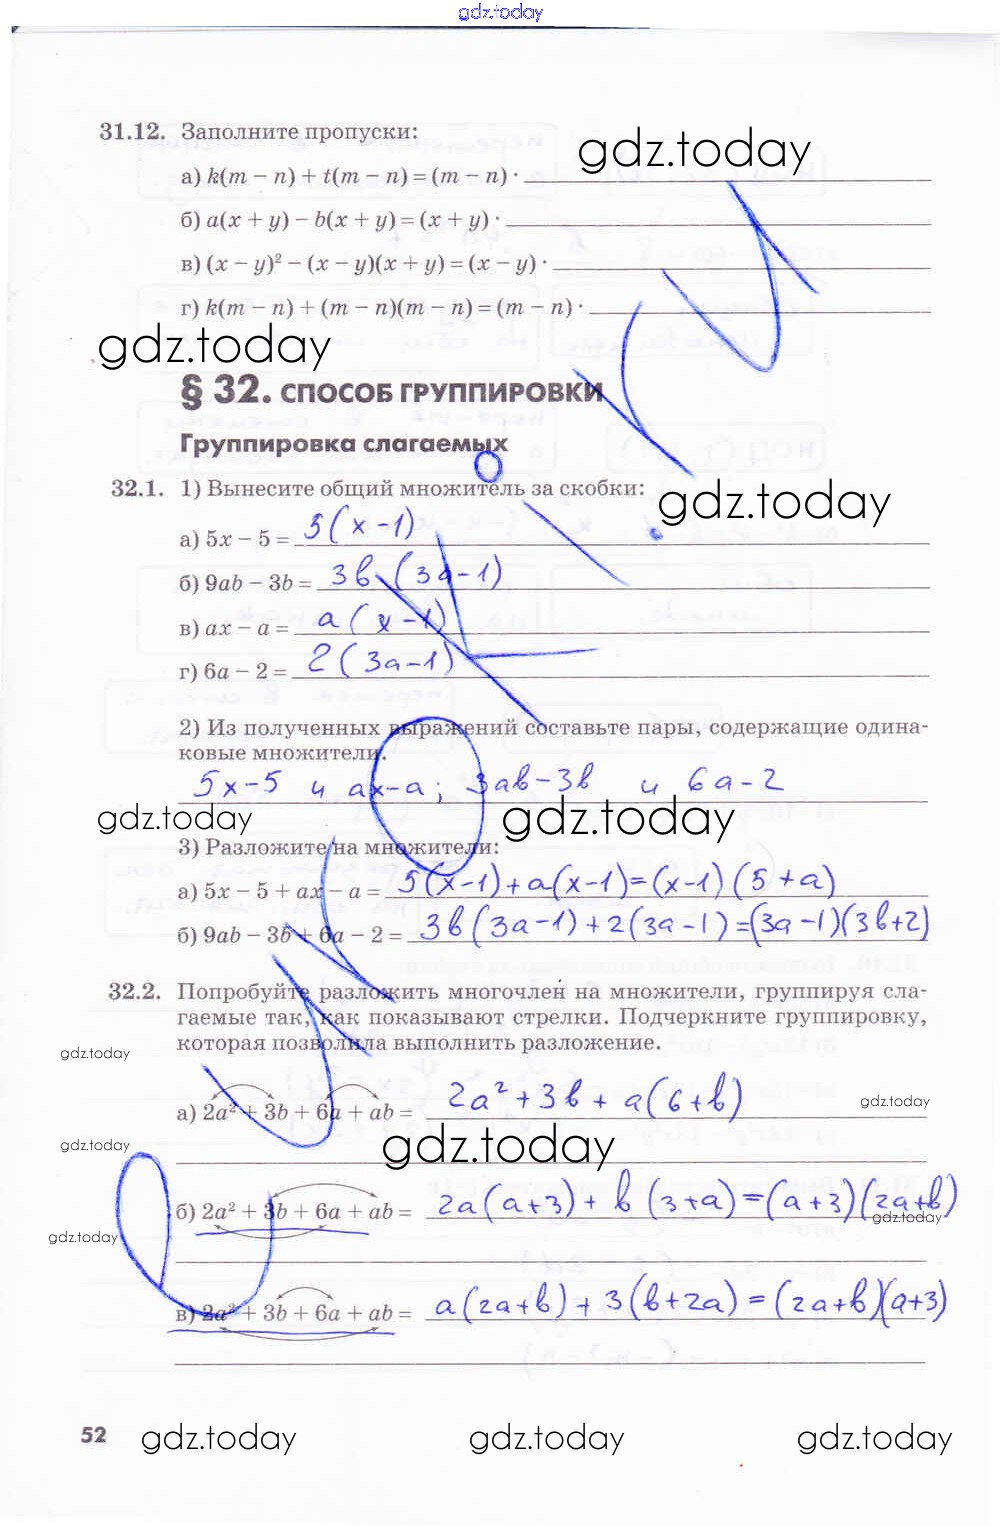 gdz.today
31.12. Заполните пропуски:
gdz.today
а) k(m − n) + t(m − n) = (m − n) ·
б) a(x + y) − b(x + y) = (x + y) ·
в) (x − y)² − (x − y)(x + y) = (x − y) ·
г) k(m − n) + (m − n)(m − n) = (m − n) ·
gdz.today
§ 32. СПОСОБ ГРУППИРОВКИ
Группировка слагаемых
32.1. 1) Вынесите общий множитель за скобки:
gdz.today
а) 5x − 5 = 5(x−1)
б) 9ab − 3b = 3b (3a−1)
в) ax − a = a(x−1)
г) 6a − 2 = 2(3a−1)
2) Из полученных выражений составьте пары, содержащие одина-
ковые множители.
5x−5 и ax−a; 3ab−3b и 6a−2
gdz.today gdz.today
3) Разложите на множители:
а) 5x − 5 + ax − a = 5(x−1)+a(x−1)=(x−1)(5+a)
б) 9ab − 3b + 6a − 2 = 3b(3a−1)+2(3a−1)=(3a−1)(3b+2)
32.2. Попробуйте разложить многочлен на множители, группируя сла-
гаемые так, как показывают стрелки. Подчеркните группировку,
которая позволила выполнить разложение.
gdz.today
gdz.today
а) 2a² + 3b + 6a + ab = 2a²+3b+a(6+b)
gdz.today gdz.today
б) 2a² + 3b + 6a + ab = 2a(a+3)+b(3+a)=(a+3)(2a+b)
gdz.today
gdz.today
в) 2a² + 3b + 6a + ab = a(2a+b)+3(b+2a)=(2a+b)(a+3)
52 gdz.today gdz.today gdz.today